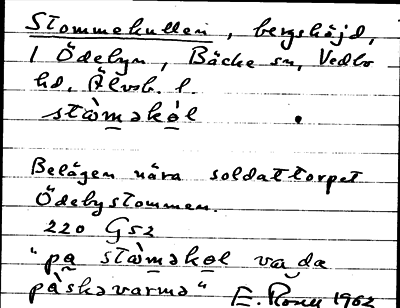 Stommekullen, bergshöjd,
i Ödebyn, Bäcke sn, Vedbo
hd, Älvsb. l.
ståməkəl
Belägen nära soldattorpet
Ödebystommen.
220 G52
"pa ståməkəl va da
påskavarma" E. Rosell 1962